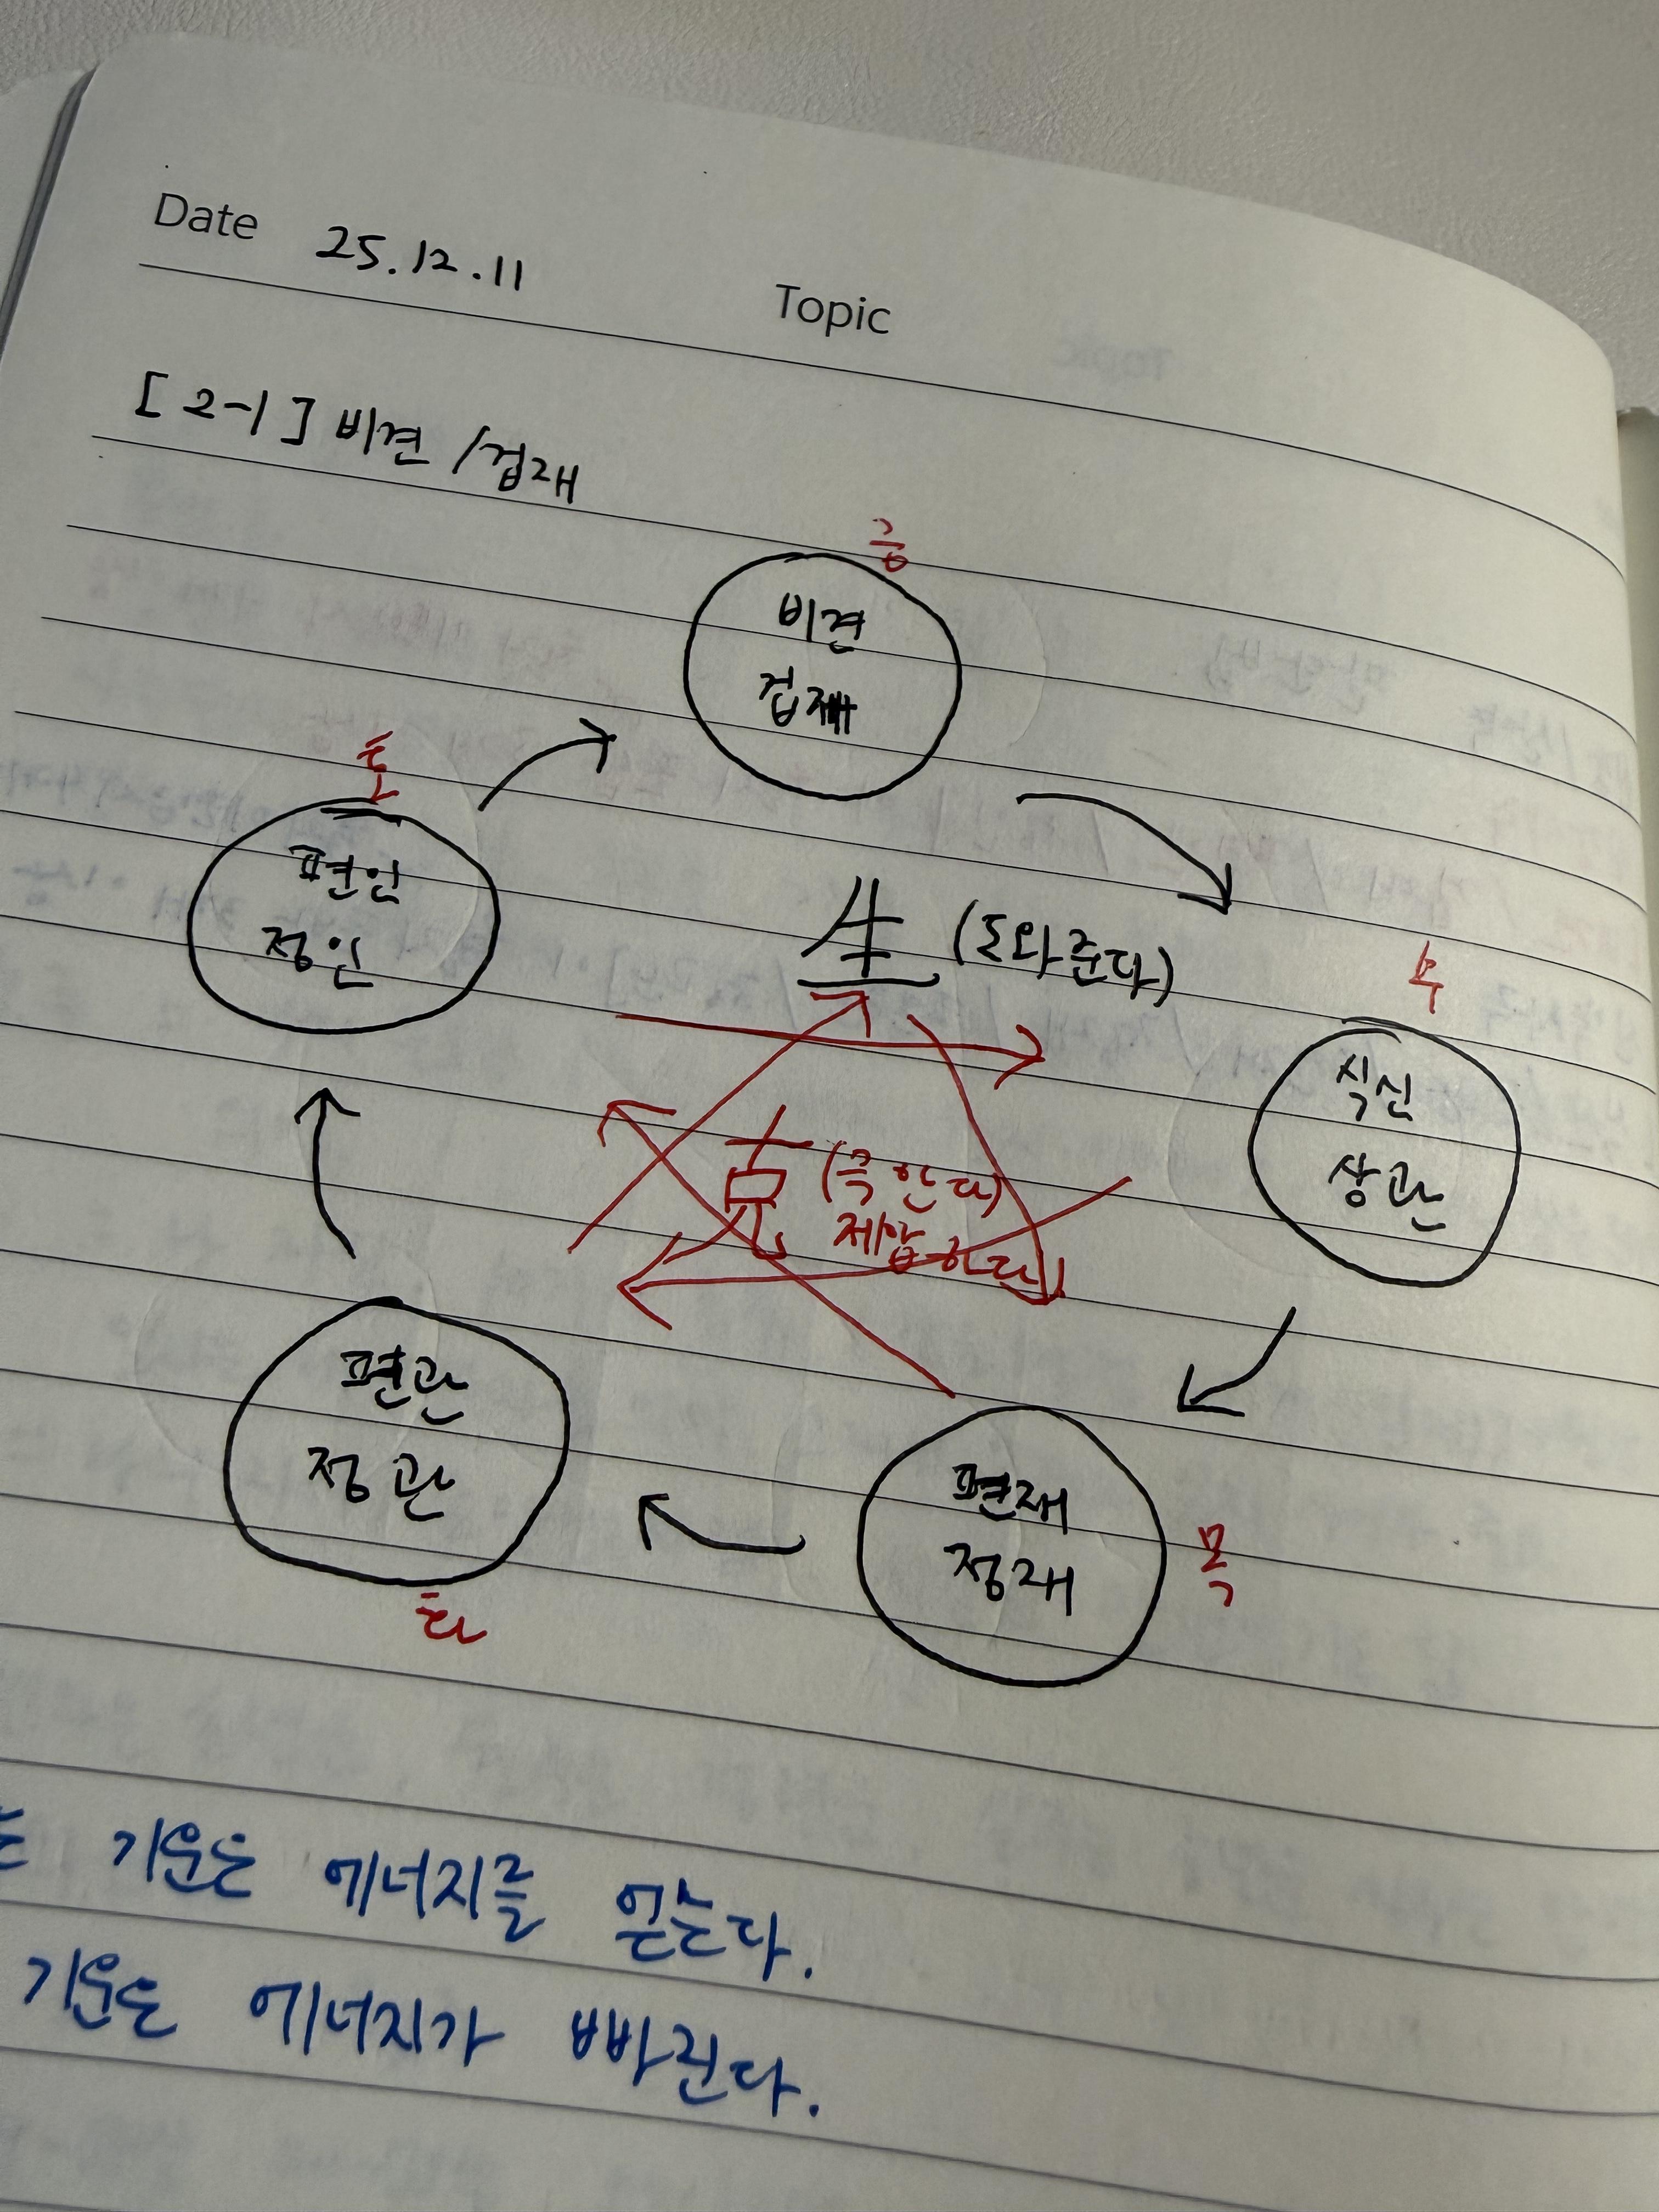 Date 25.12.11
Topic
[2-1] 비견 / 겁재
금
비견
겁재
토
편인
정인
生 (도와준다)
수
식신
상관
克 (극한다)
제압한다
편관
정관
화
편재
정재
목
기운은 에너지를 얻는다.
기운은 에너지가 빠진다.